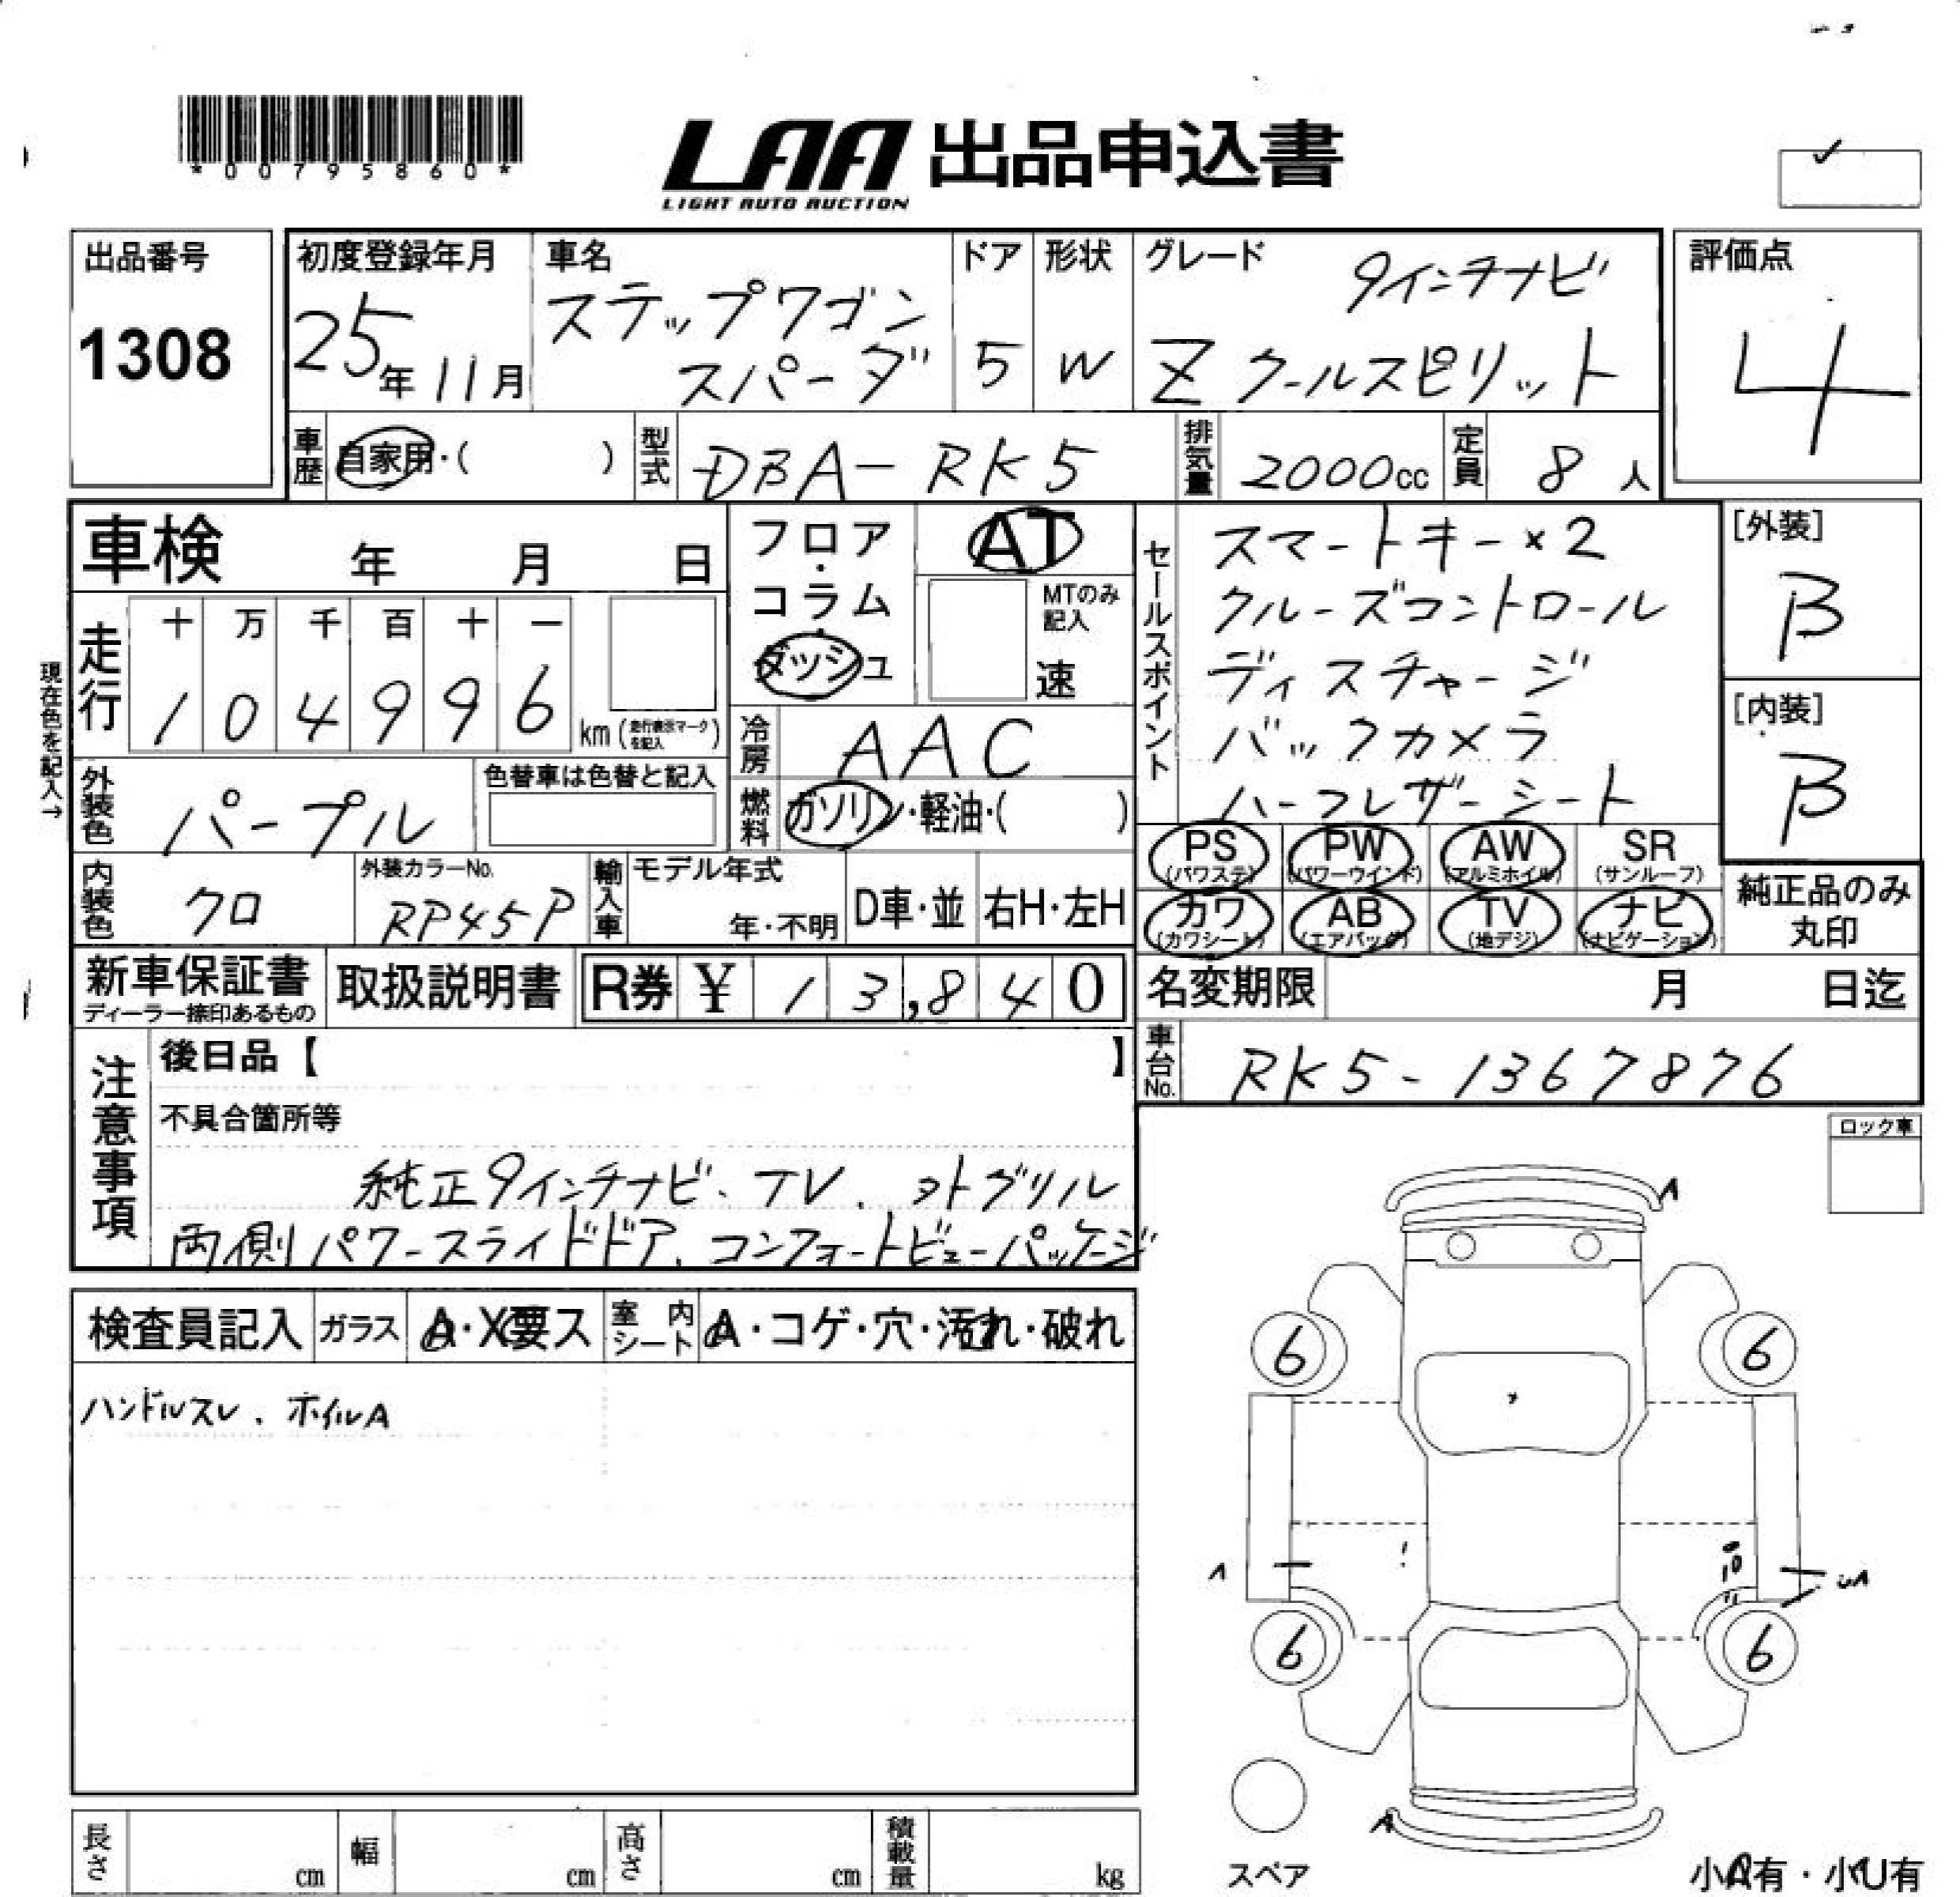 *00795860*
LAA 出品申込書
LIGHT AUTO AUCTION
出品番号
1308
初度登録年月
25年11月
車名
ステップワゴン
スパーダ
ドア
5
形状
W
グレード
9インチナビ
Z クールスピリット
評価点
4
車歴 自家用・( )
型式 DBA-RK5
排気量 2000cc
定員 8人
車検 年 月 日
走行 十 万 千 百 十 一
104996 km (走行表示マークを記入)
現在色を記入→
フロア・コラム・ダッシュ
AT
MTのみ記入
速
冷房 AAC
燃料 ガソリン・軽油・( )
セールスポイント
スマートキー×2
クルーズコントロール
ディスチャージ
バックカメラ
ハーフレザーシート
[外装]
B
[内装]
B
外装色 パープル
色替車は色替と記入
内装色 クロ
外装カラーNo.
RP45P
輸入車
モデル年式
年・不明
D車・並
右H・左H
PS (パワステ)
PW (パワーウインド)
AW (アルミホイル)
SR (サンルーフ)
カワ (カワシート)
AB (エアバッグ)
TV (地デジ)
ナビ (ナビゲーション)
純正品のみ丸印
新車保証書
ディーラー捺印あるもの
取扱説明書
R券 ¥ 13,840
名変期限 月 日迄
車台No. RK5-1367876
注意事項
後日品【 】
不具合箇所等
純正9インチナビ、TV、
両側パワースライドドア、コンフォートビューパッケージ
ロック車
検査員記入
ガラス A・X要ス
室内シート A・コゲ・穴・汚れ・破れ
ハンドルスレ、ホイルA
A
6 6
A
6 6
A
スペア
小A有・小U有
長さ cm
幅 cm
高さ cm
積載量 kg